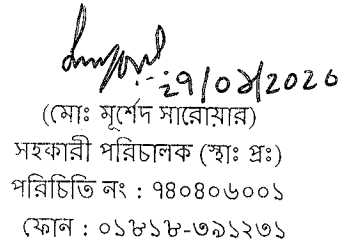 ২৭/০১/২০২৫
(মোঃ মূর্শেদ সারোয়ার)
সহকারী পরিচালক (স্থাঃ প্রঃ)
পরিচিতি নং : ৭৪০৪০৬০০১
ফোন : ০১৮১৮-৩৯১২৩১